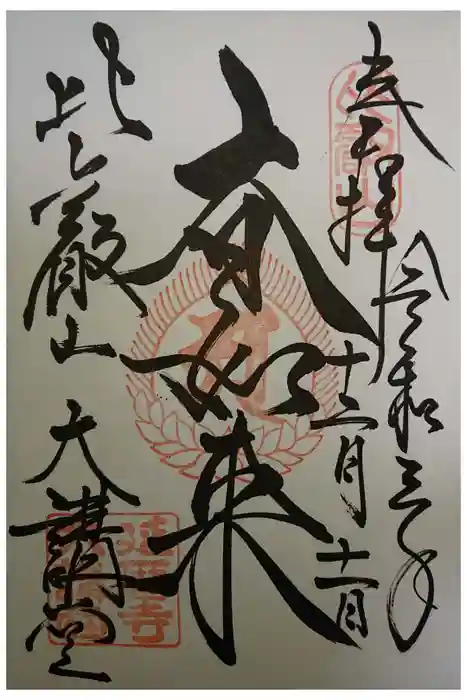 奉拝
令和三年
十二月十一日
大日如来
比叡山
大講堂
延暦寺